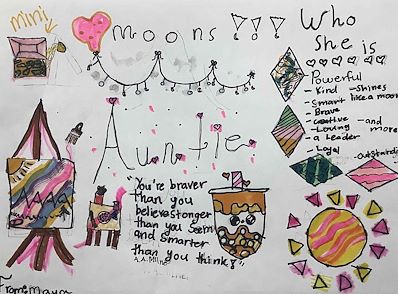 mini
moons!!!
Who
She is
Auntie
Powerful
- Kind - Shines
Smart like a moon
- Brave
- Creative - and
- Loving more
- a Leader
- Loyal
- Outstanding
"You're braver
than you
believe stonger
than you seem
and smarter
than you think!"
A.A Milne
From: Maya